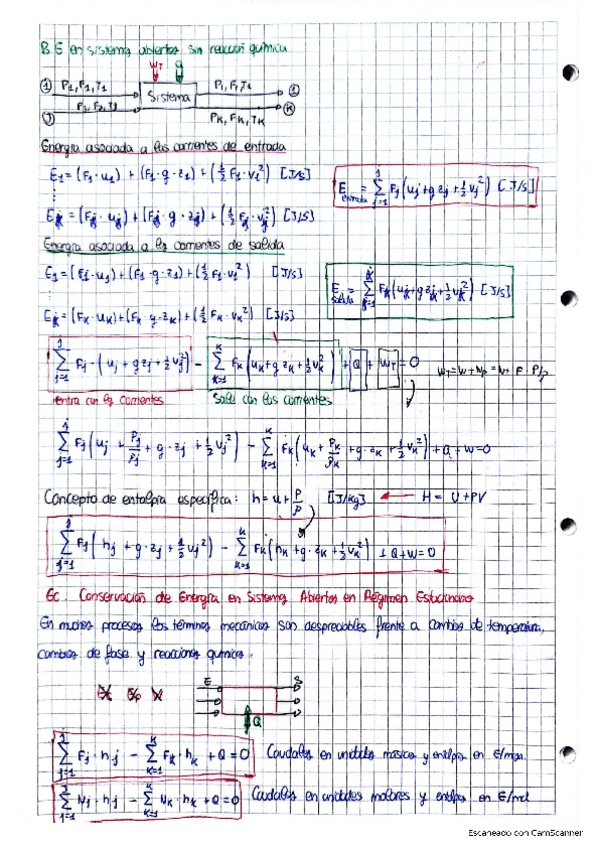 B.E en sistemas abiertos sin reacción química
W_T Q
① P₁,F₁,T₁ Sistema P₁,F₁,T₁ ①
Ⓙ P_K,F_K,T_K Ⓚ
Energía asociada a las corrientes de entrada
E₁ = (F₁·u₁) + (F₁·g·z₁) + (½F₁·v₁²) [J/s]
E_entrada = Σ_{j=1}^{j} F_j (u_j + g z_j + ½ v_j²) [J/s]
⋮
E_j = (F_j·u_j) + (F_j·g·z_j) + (½ F_j·v_j²) [J/s]
Energía asociada a las corrientes de salida
E₁ = (F₁·u₁) + (F₁·g·z₁) + (½F₁·v₁²) [J/s]
E_salida = Σ_{k=1}^{k} F_k (u_k + g z_k + ½ v_k²) [J/s]
⋮
E_k = (F_k·u_k) + (F_k·g·z_k) + (½F_k·v_k²) [J/s]
Σ_{j=1}^{j} F_j·(u_j + g z_j + ½ v_j²) − Σ_{k=1}^{k} F_k (u_k + g z_k + ½ v_k²) + Q + W_T = 0
entra con las corrientes Sale con las corrientes
Σ_{j=1}^{j} F_j (u_j + P_j/ρ_j + g·z_j + ½ v_j²) − Σ_{k=1}^{k} F_k (u_k + P_k/ρ_k + g·z_k + ½ v_k²) + Q + W = 0
Concepto de entalpía específica: h = u + P/ρ [J/kg] ← H = U + PV
Σ_{j=1}^{j} F_j (h_j + g·z_j + ½ v_j²) − Σ_{k=1}^{k} F_k (h_k + g·z_k + ½ v_k²) + Q + W = 0
Ec. Conservación de Energía en Sistemas Abiertos en Régimen Estacionario
En muchos procesos los términos mecánicos son despreciables frente a cambios de temperatura,
cambios de fase y reacciones químicas.
E S
Q
Σ_{j=1}^{j} F_j·h_j − Σ_{k=1}^{k} F_k·h_k + Q = 0 Caudales en unidades másicas y entalpías en E/masa
Σ_{j=1}^{j} N_j·h_j − Σ_{k=1}^{k} N_k·h_k + Q = 0 Caudales en unidades molares y entalpías en E/mol
Escaneado con CamScanner